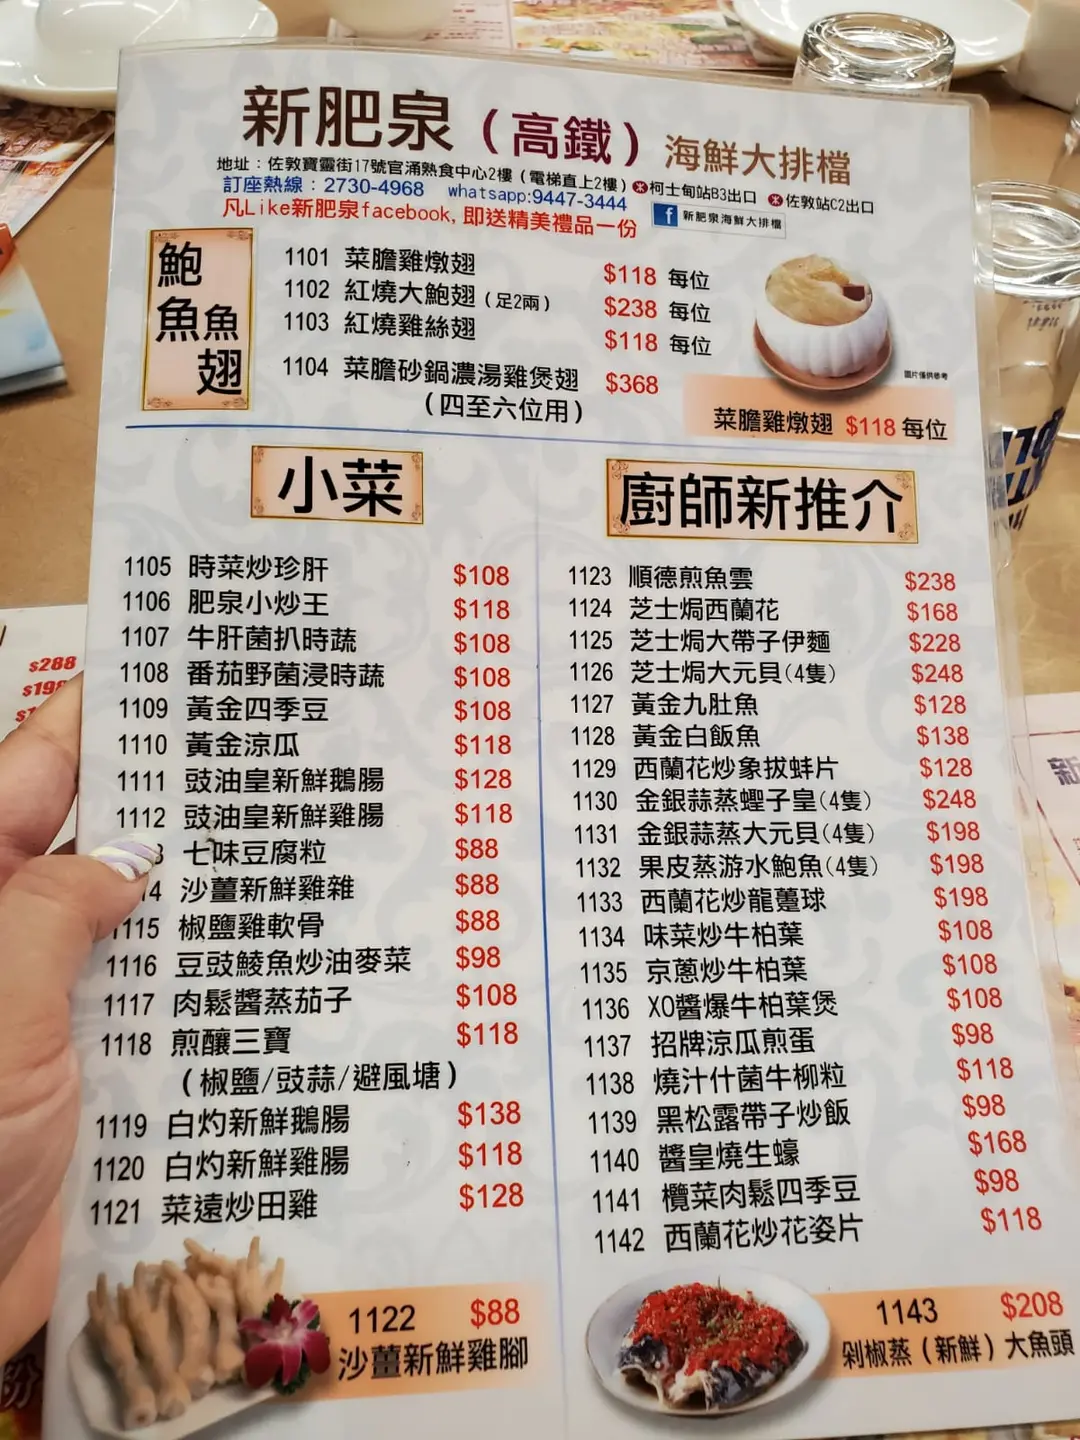 新肥泉（高鐵）海鮮大排檔
地址：佐敦寶靈街17號官涌熟食中心2樓（電梯直上2樓）柯士甸站B3出口 佐敦站C2出口
訂座熱線：2730-4968 whatsapp:9447-3444
凡Like新肥泉facebook,即送精美禮品一份
f 新肥泉海鮮大排檔
鮑魚魚翅
1101 菜膽雞燉翅 $118 每位
1102 紅燒大鮑翅（足2兩） $238 每位
1103 紅燒雞絲翅 $118 每位
1104 菜膽砂鍋濃湯雞煲翅 $368
（四至六位用）
圖片僅供參考
菜膽雞燉翅 $118 每位
小菜
1105 時菜炒珍肝 $108
1106 肥泉小炒王 $118
1107 牛肝菌扒時蔬 $108
1108 番茄野菌浸時蔬 $108
1109 黃金四季豆 $108
1110 黃金涼瓜 $118
1111 豉油皇新鮮鵝腸 $128
1112 豉油皇新鮮雞腸 $118
3 七味豆腐粒 $88
14 沙薑新鮮雞雜 $88
1115 椒鹽雞軟骨 $88
1116 豆豉鯪魚炒油麥菜 $98
1117 肉鬆醬蒸茄子 $108
1118 煎釀三寶 $118
（椒鹽/豉蒜/避風塘）
1119 白灼新鮮鵝腸 $138
1120 白灼新鮮雞腸 $118
1121 菜遠炒田雞 $128
1122 $88
沙薑新鮮雞腳
廚師新推介
1123 順德煎魚雲 $238
1124 芝士焗西蘭花 $168
1125 芝士焗大帶子伊麵 $228
1126 芝士焗大元貝(4隻) $248
1127 黃金九肚魚 $128
1128 黃金白飯魚 $138
1129 西蘭花炒象拔蚌片 $128
1130 金銀蒜蒸蟶子皇(4隻) $248
1131 金銀蒜蒸大元貝(4隻) $198
1132 果皮蒸游水鮑魚(4隻) $198
1133 西蘭花炒龍躉球 $198
1134 味菜炒牛柏葉 $108
1135 京蔥炒牛柏葉 $108
1136 XO醬爆牛柏葉煲 $108
1137 招牌涼瓜煎蛋 $98
1138 燒汁什菌牛柳粒 $118
1139 黑松露帶子炒飯 $98
1140 醬皇燒生蠔 $168
1141 欖菜肉鬆四季豆 $98
1142 西蘭花炒花姿片 $118
1143 $208
剁椒蒸（新鮮）大魚頭
$288
新